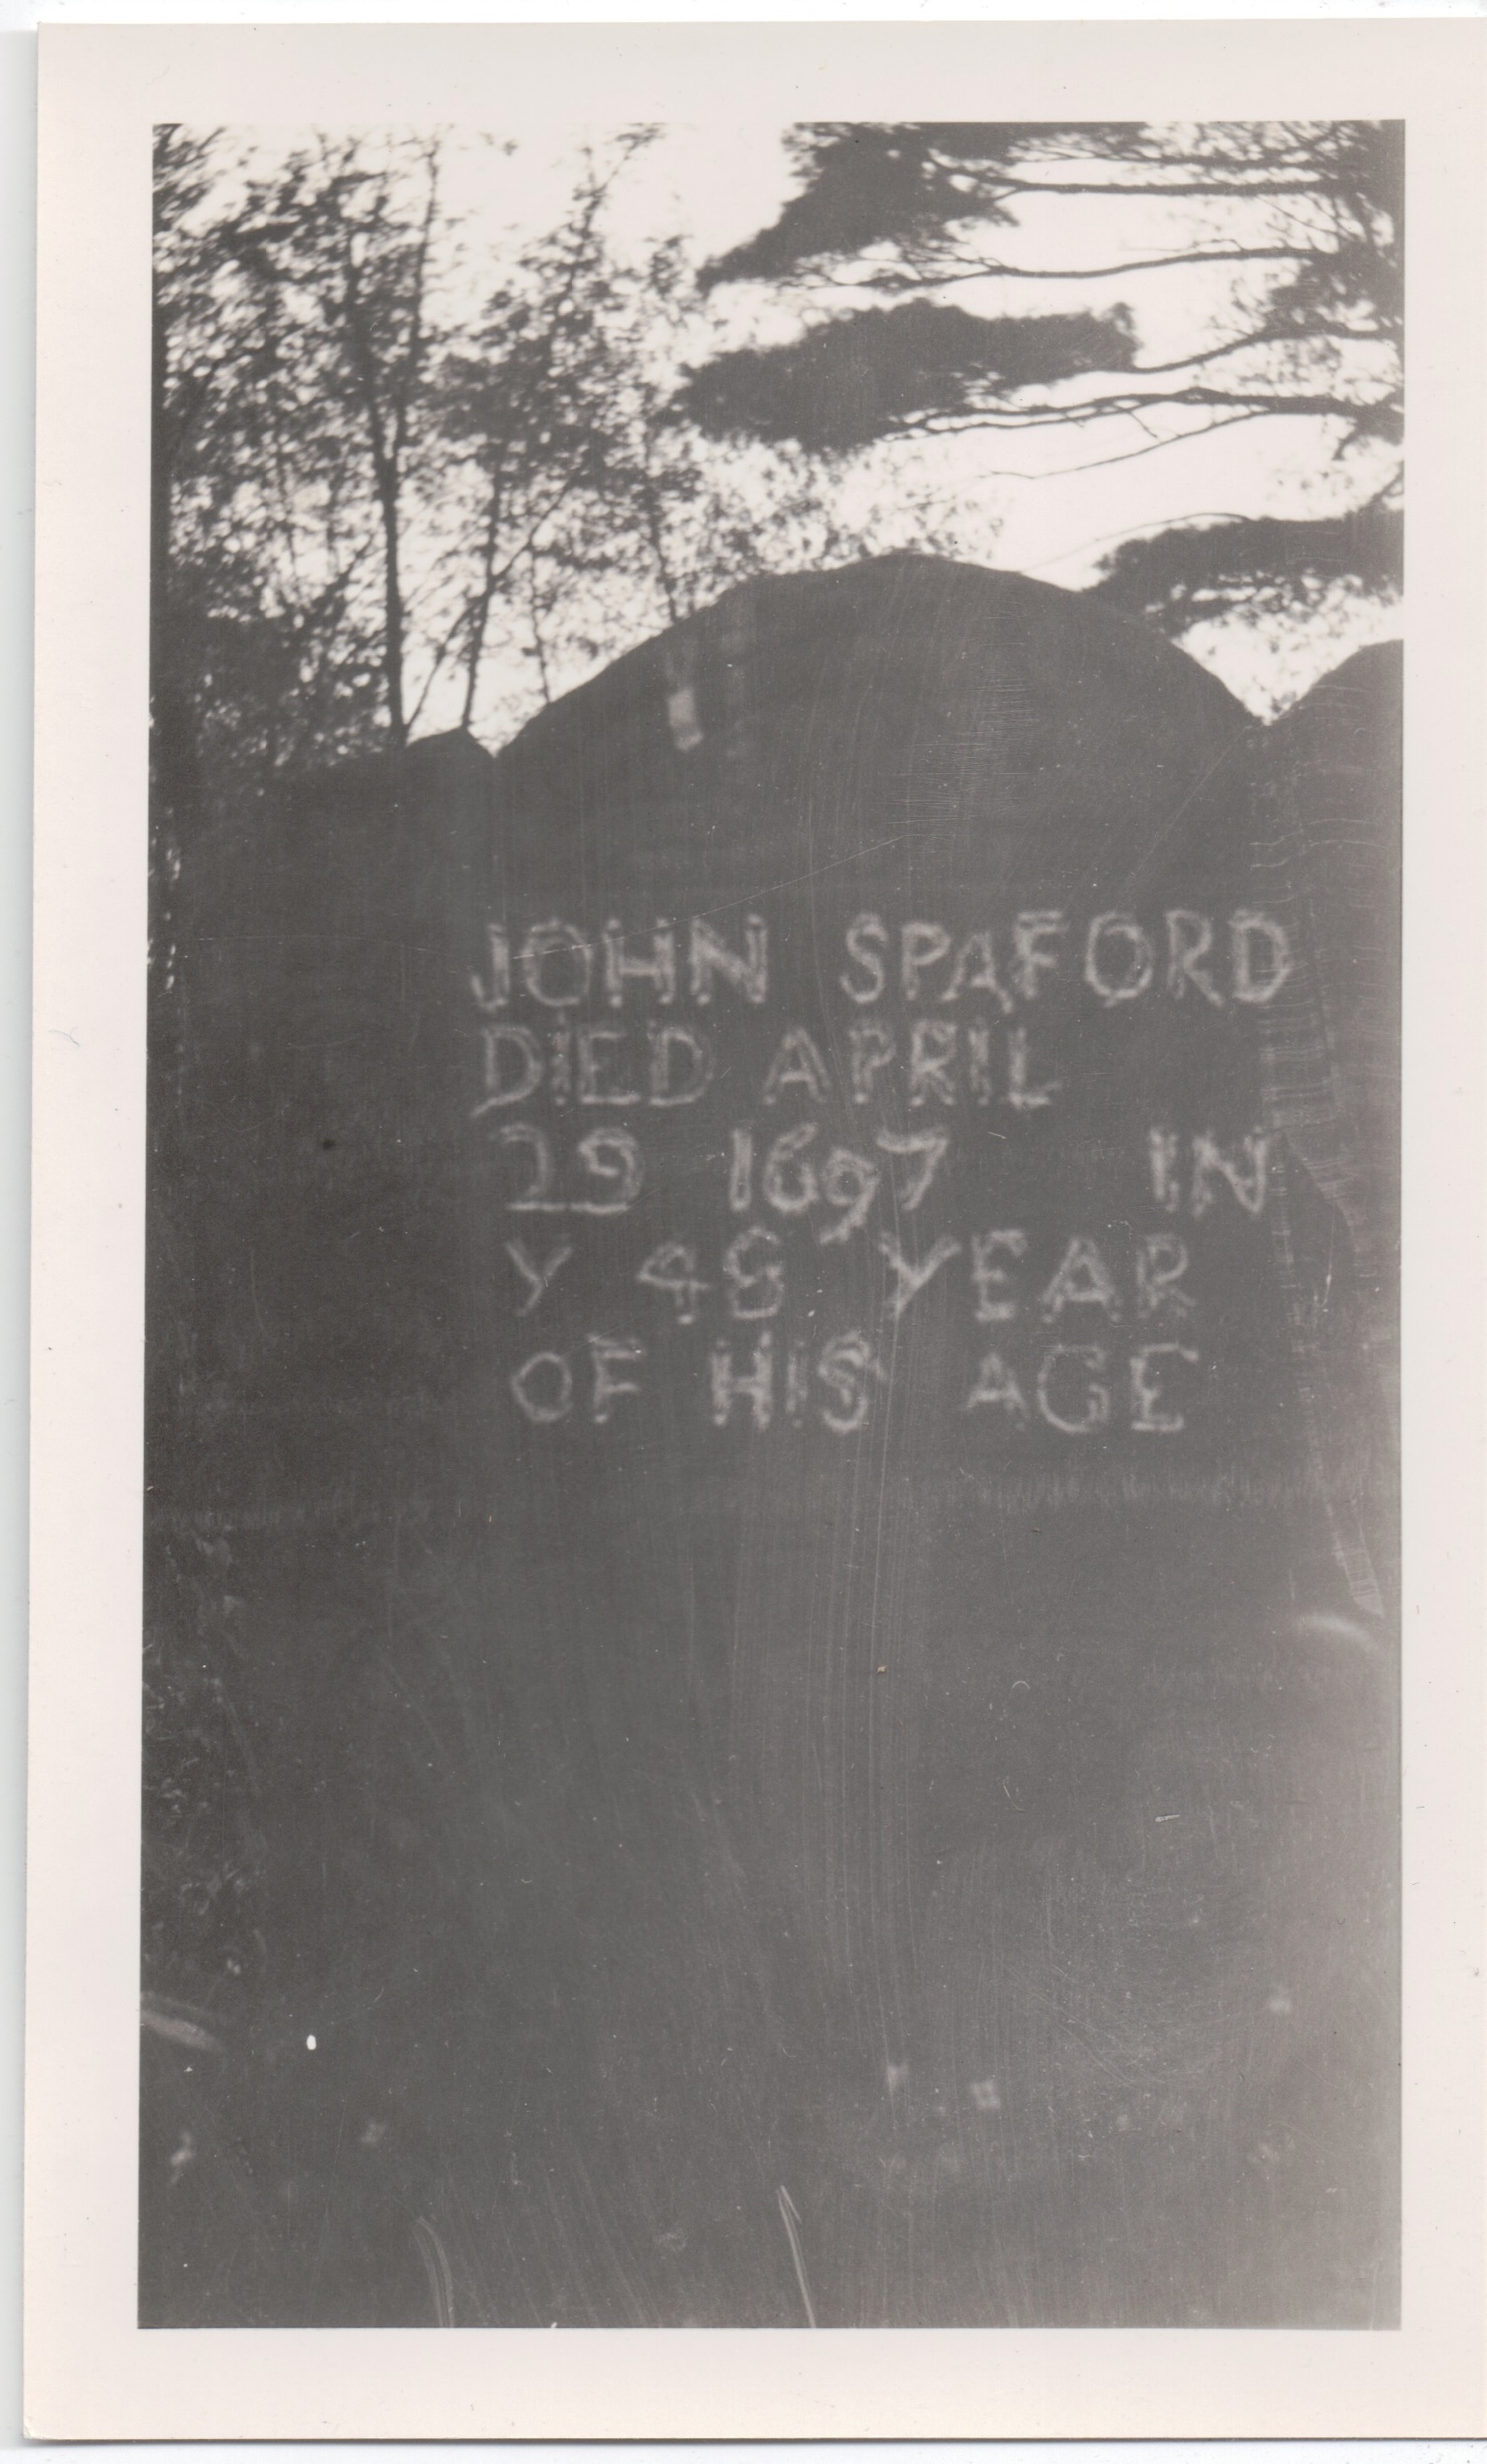 JOHN SPAFORD
DIED APRIL
29 1697 IN
Y 48 YEAR
OF HIS AGE